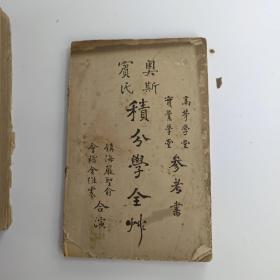 高等學堂
實業學堂
參考書
奧斯
賓氏
積分學全艸
鎮海嚴聖俞
會稽金仕衆
合演